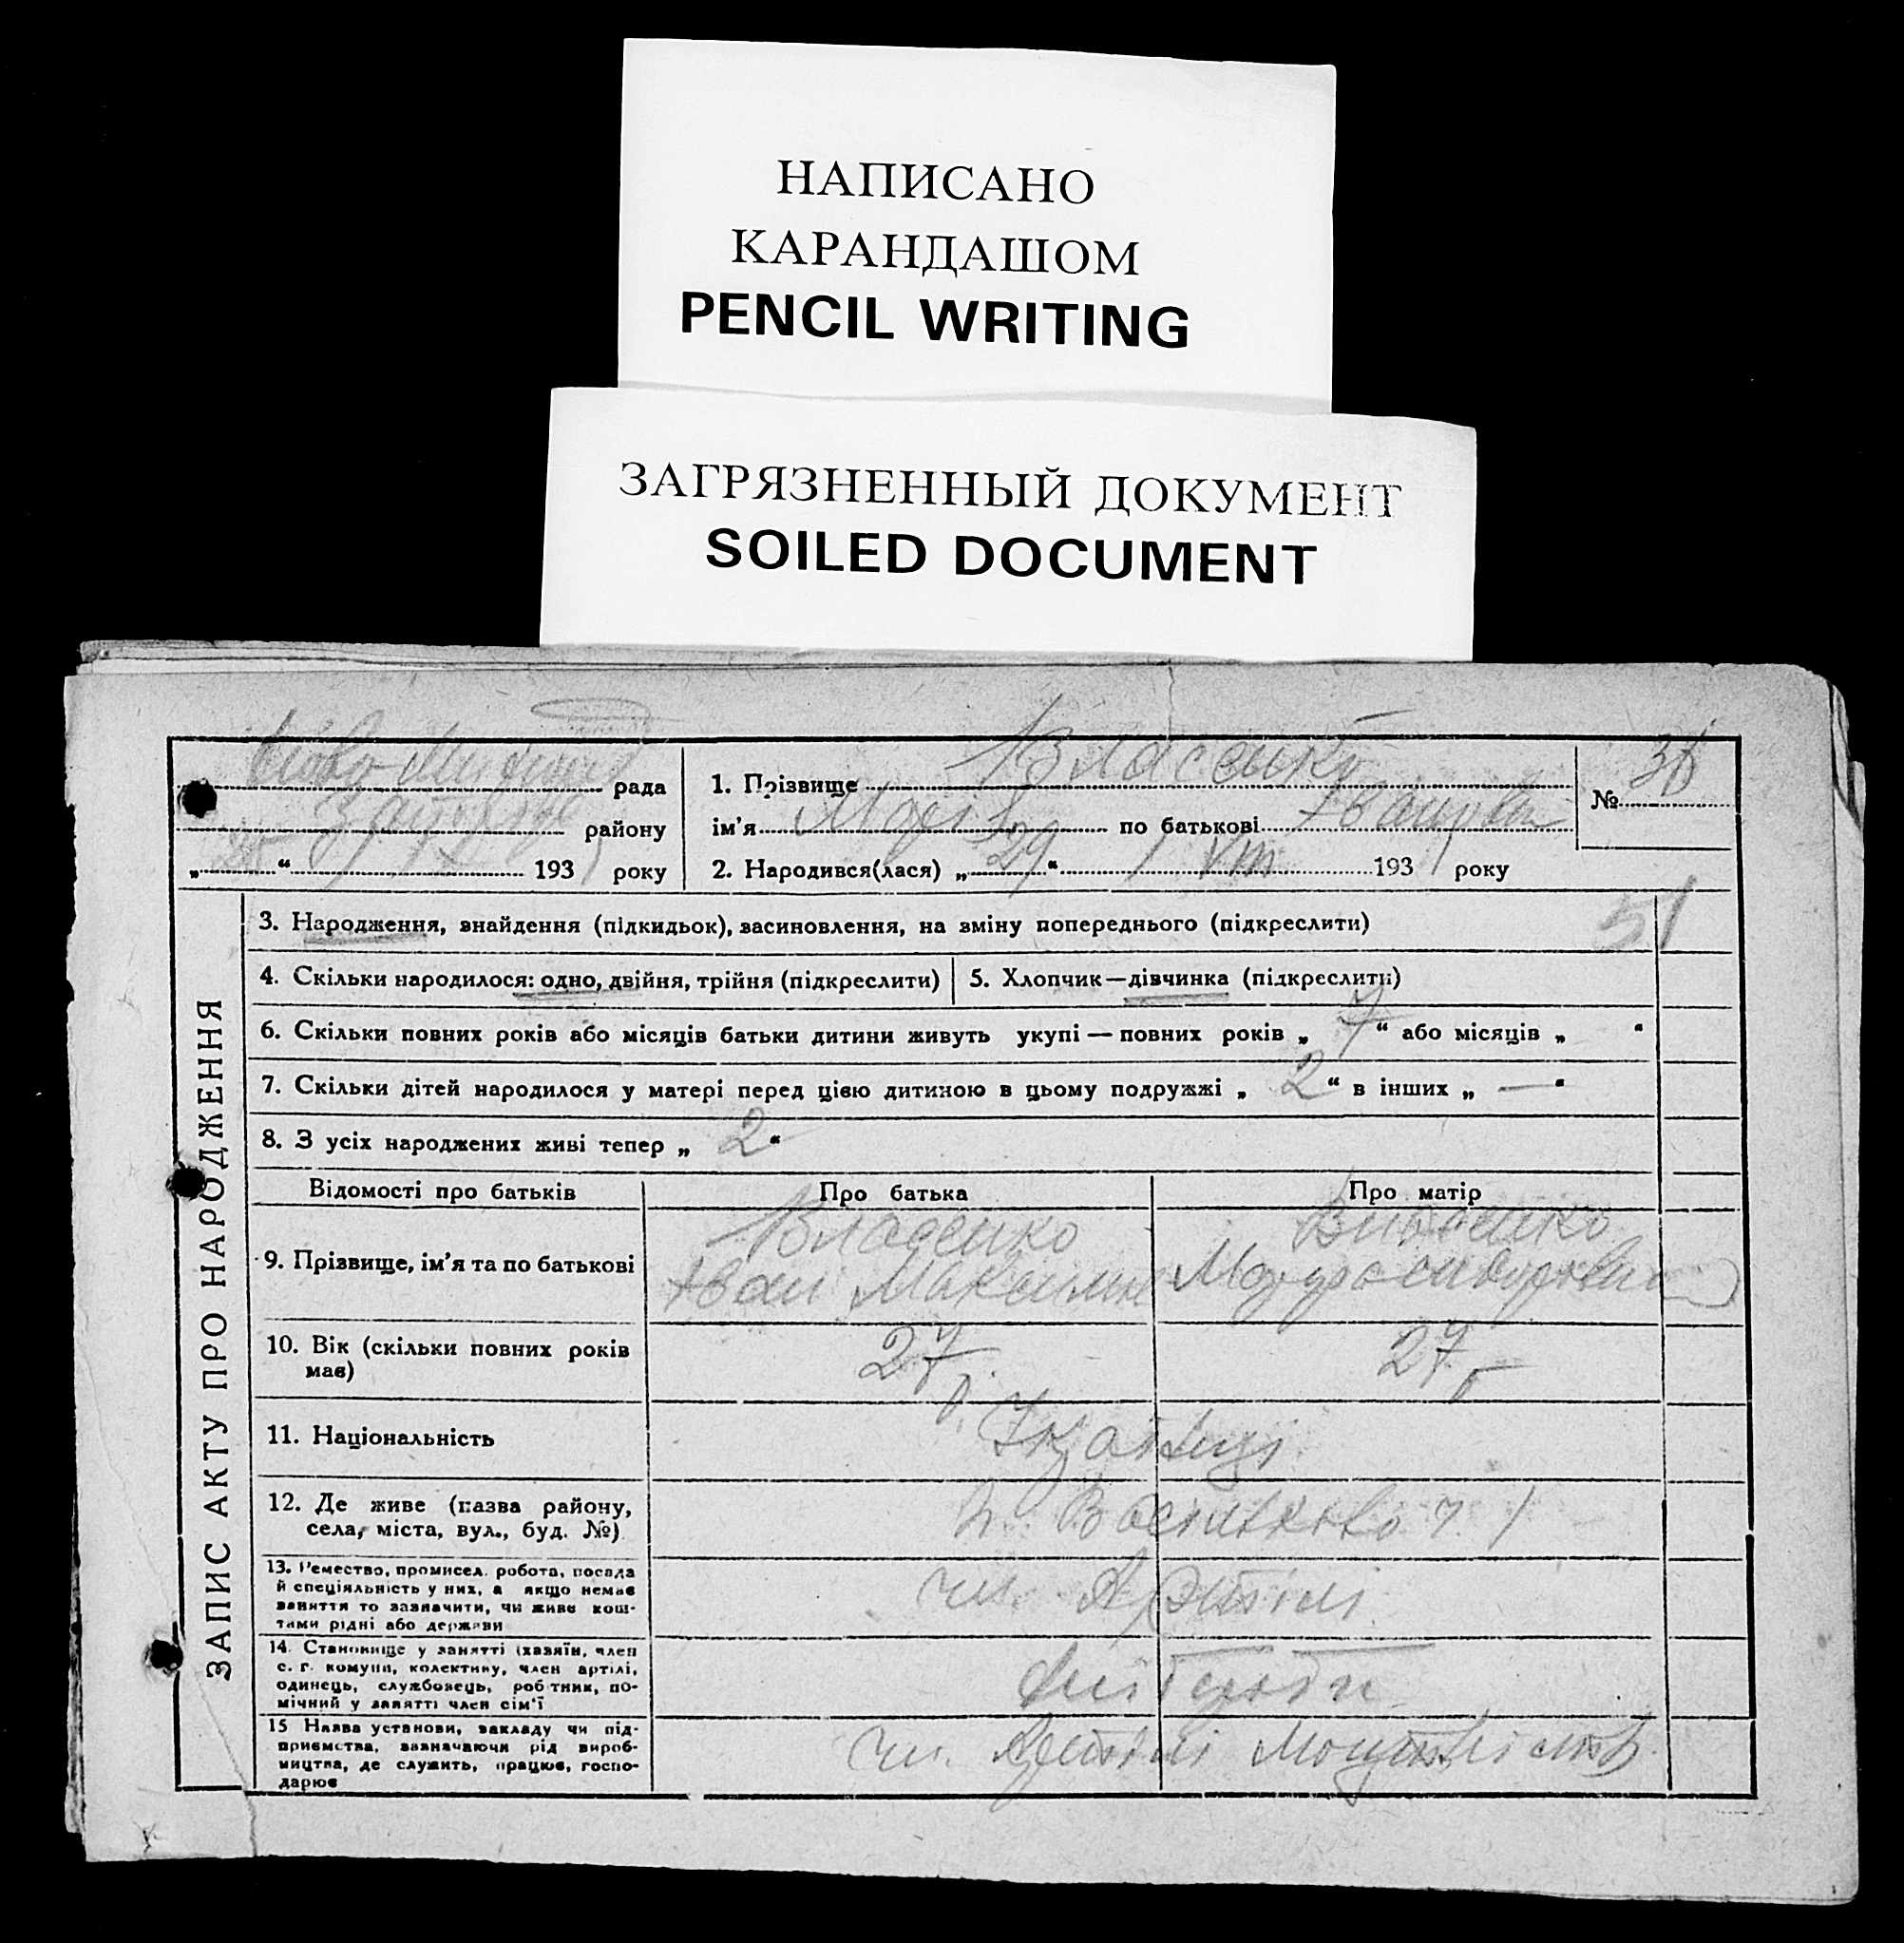 НАПИСАНО
КАРАНДАШОМ
PENCIL WRITING
ЗАГРЯЗНЕННЫЙ ДОКУМЕНТ
SOILED DOCUMENT
ЗАПИС АКТУ ПРО НАРОДЖЕННЯ
рада
району
„ “ 193 року
1. Прізвище Власенко
ім'я Марія по батькові Іванівна
2. Народився(лася) „ 29 “ VIII 1931 року
№ 36
51
3. Народження, знайдення (підкидьок), засиновлення, на зміну попереднього (підкреслити)
4. Скільки народилося: одно, двійня, трійня (підкреслити)
5. Хлопчик—дівчинка (підкреслити)
6. Скільки повних років або місяців батьки дитини живуть укупі — повних років „ 7 “ або місяців „ “
7. Скільки дітей народилося у матері перед цією дитиною в цьому подружжі „ 2 “ в інших „ — “
8. З усіх народжених живі тепер „ 2 “
Відомості про батьків Про батька Про матір
9. Прізвище, ім'я та по батькові
Власенко
Іван Максимов
Власенко
10. Вік (скільки повних років має)
27 р.
27 р
11. Національність
Українці
12. Де живе (назва району, села, міста, вул., буд. №)
13. Ремество, промисел, робота, посада
й спеціяльність у них, а якщо немає
заняття то зазначити, чи живе кош-
тами рідні або держави
чл. Артілі
14. Становище у занятті (хазяїн, член
с. г. комуни, колективу, член артілі,
одинець, службовець, робітник, по-
мічний у занятті член сім'ї
15 Назва установи, закладу чи під-
приємства, зазначаючи рід вироб-
ництва, де служить, працює, госпо-
дарює
чл. Артілі